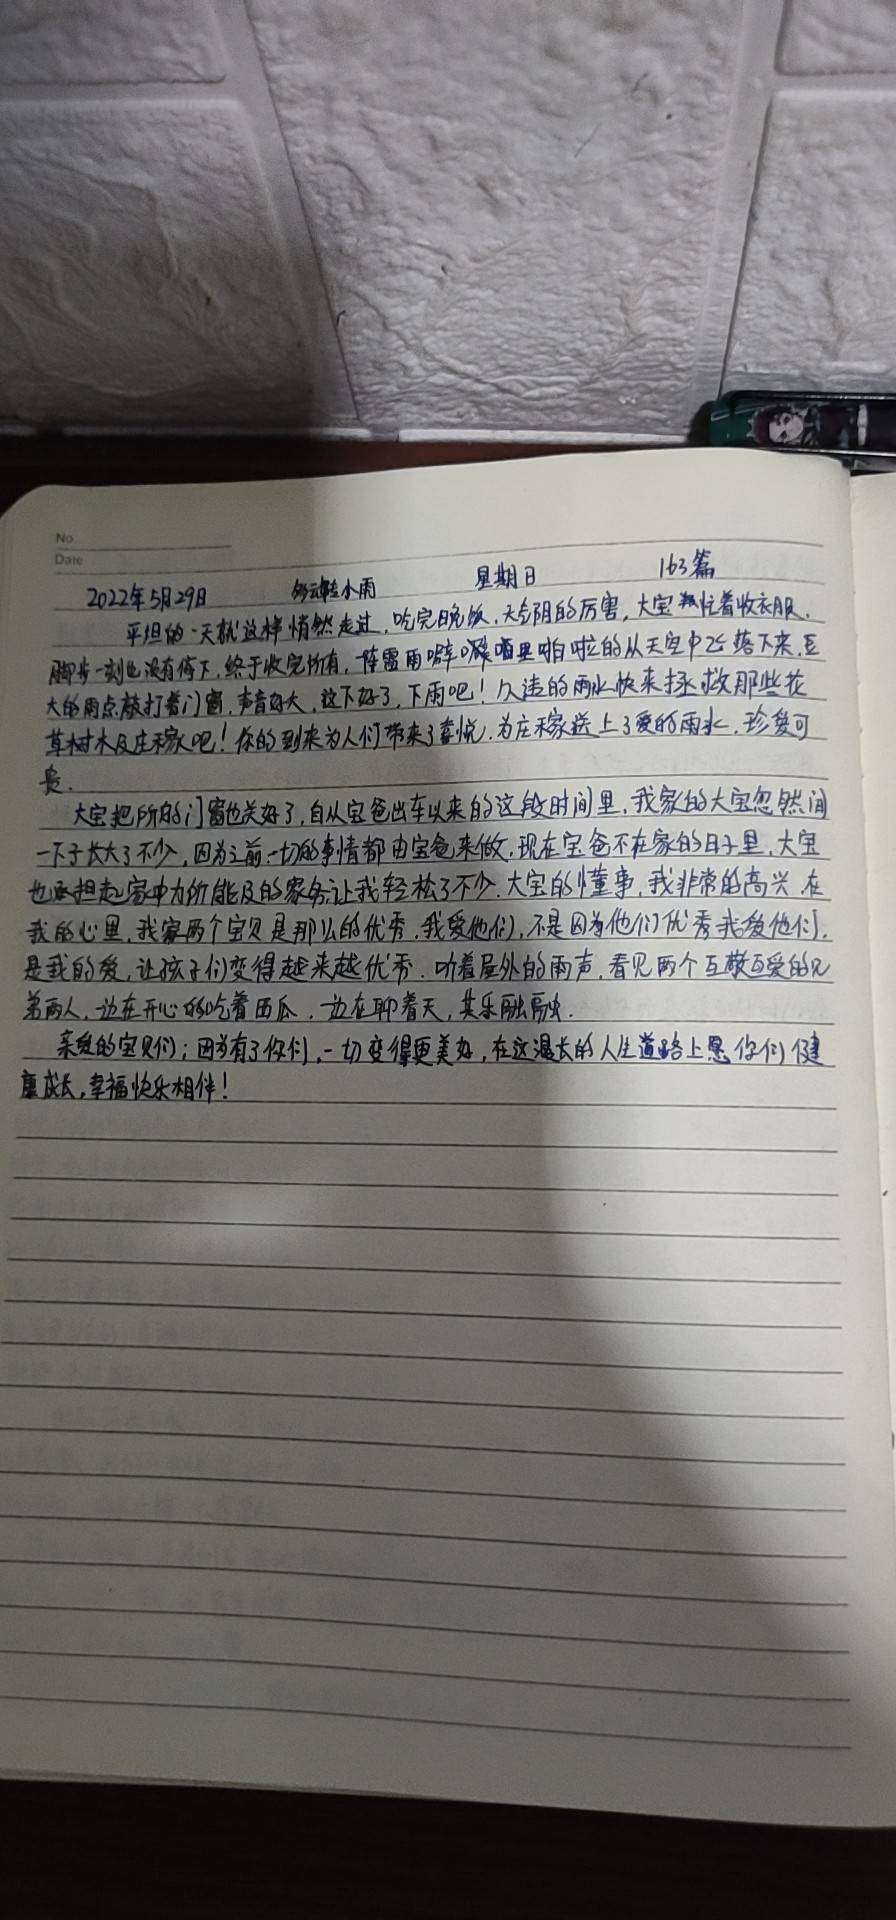 No.
Date
2022年5月29日 多云转小雨 星期日 163篇
平坦的一天就这样悄然走过,吃完晚饭,天气阴的厉害,大宝忙着收衣服.
脚步一刻也没有停下,终于收完所有,阵雷雨噼哩啪啦的从天空中飞落下来,巨
大的雨点敲打着门窗,声音好大,这下好了,下雨吧!久违的雨水快来拯救那些花
草树木及庄稼吧!你的到来为人们带来了喜悦.为庄稼送上了爱的雨水,珍贵可
贵.
大宝把所的门窗也关好了,自从宝爸出车以来的这段时间里,我家的大宝忽然间
一下子长大了不少,因为之前一切的事情都由宝爸来做,现在宝爸不在家的日子里,大宝
也承担起家中力所能及的家务,让我轻松了不少.大宝的懂事,我非常的高兴,在
我的心里,我家两个宝贝是那么的优秀.我爱他们,不是因为他们优秀我爱他们,
是我的爱,让孩子们变得越来越优秀.听着屋外的雨声,看见两个互敬互爱的兄
弟两人,一边在开心的吃着西瓜,一边在聊着天,其乐融融.
亲爱的宝贝们;因为有了你们,一切变得更美好,在这漫长的人生道路上愿你们健
康成长,幸福快乐相伴!